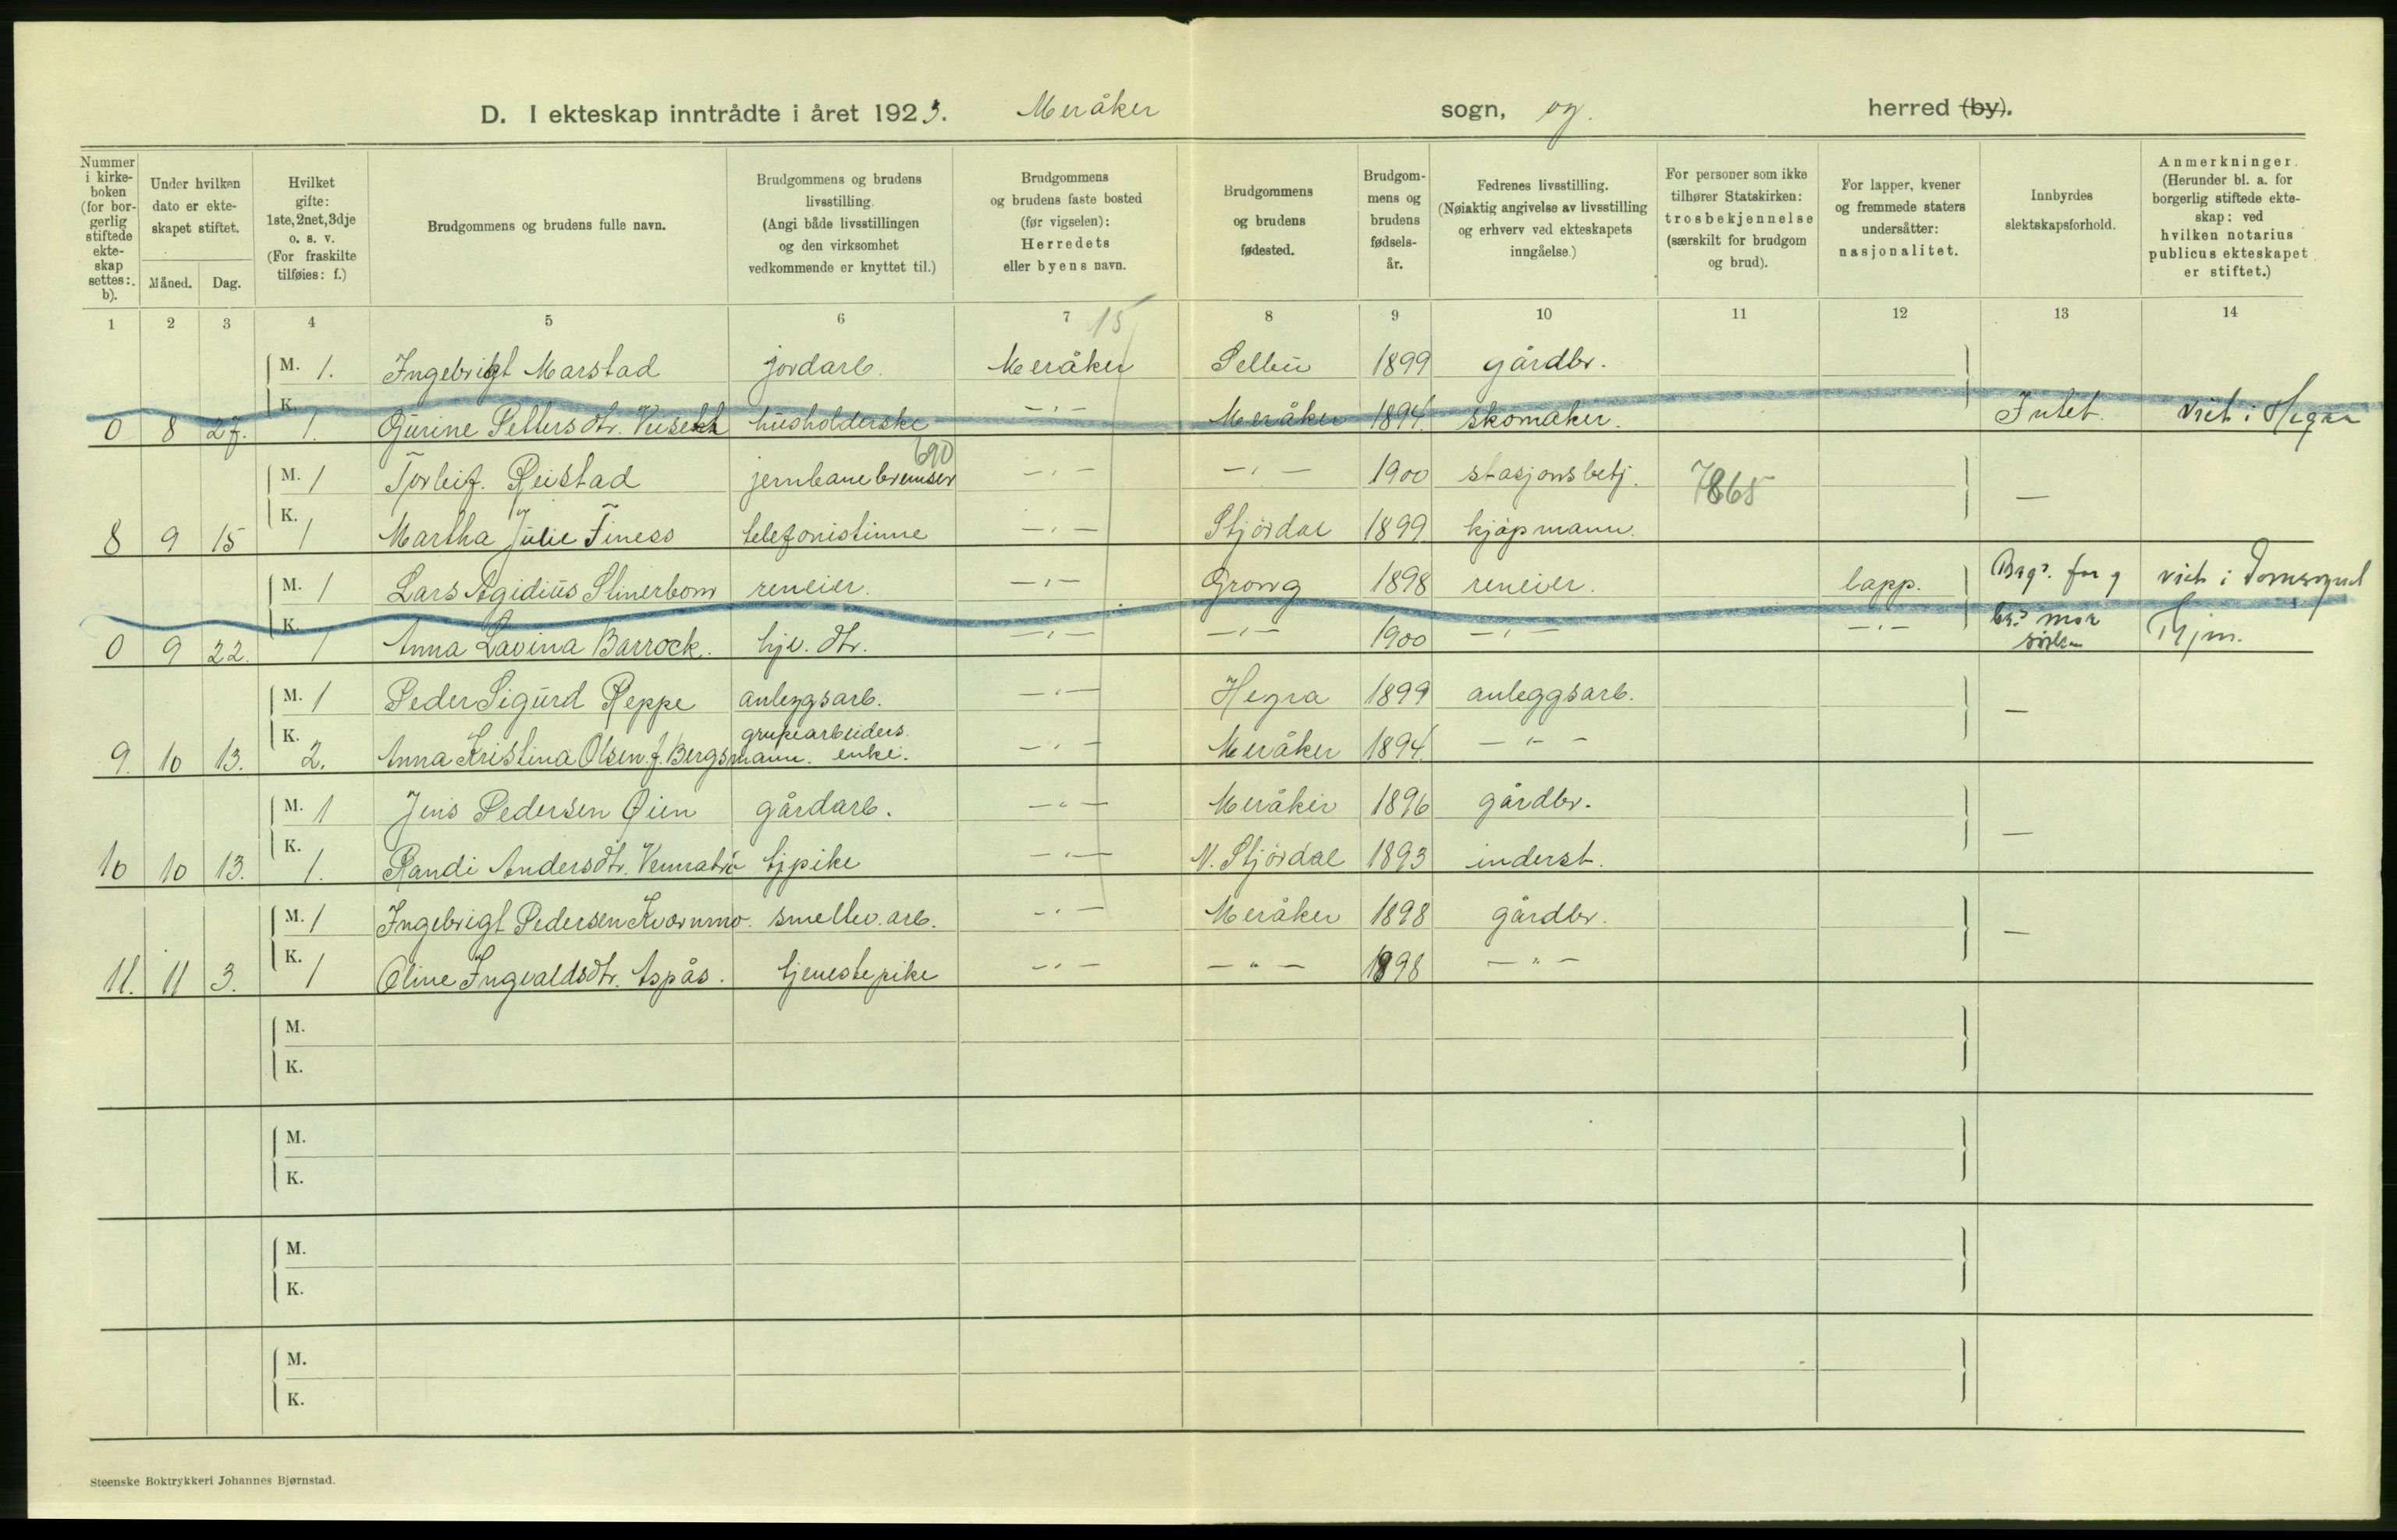 D. I ekteskap inntrådte i året 1923. Meråker sogn, og herred (by).
Nummer i kirkeboken (for borgerlig stiftede ekteskap settes: b).
Under hvilken dato er ekteskapet stiftet.
Måned. Dag.
Hvilket gifte: 1ste, 2net, 3dje o. s. v. (For fraskilte tilføies: f.)
Brudgommens og brudens fulle navn.
Brudgommens og brudens livsstilling. (Angi både livsstillingen og den virksomhet vedkommende er knyttet til.)
Brudgommens og brudens faste bosted (før vigselen): Herredets eller byens navn.
Brudgommens og brudens fødested.
Brudgommens og brudens fødselsår.
Fedrenes livsstilling. (Nøiaktig angivelse av livsstilling og erhverv ved ekteskapets inngåelse.)
For personer som ikke tilhører Statskirken: trosbekjennelse (særskilt for brudgom og brud).
For lapper, kvener og fremmede staters undersåtter: nasjonalitet.
Innbyrdes slektskapsforhold.
Anmerkninger. (Herunder bl. a. for borgerlig stiftede ekteskap: ved hvilken notarius publicus ekteskapet er stiftet.)
1 2 3 4 5 6 7 8 9 10 11 12 13 14
15
M. 1. Ingebrigt Marstad jordarb. Meråker Selbu 1899 gårdbr.
0 8 27. K. 1. Gurine Pettersdtr. husholderske -"- Meråker 1894 skomaker. Intet. viet i Hegra
690
M. 1 Torleif Reistad jernbanebremser -"- -"- 1900 stasjonsbetj. 7865
8 9 15 K. 1 Martha Julie Finess telefonistinne -"- Stjördal 1899 kjøpmann. —
M. 1 Lars Agidius Stinerbom reneier. -"- Grong 1898 reneier. lapp. Brg's. far og viet i Domsognet
0 9 22. K. 1 Anna Lavina Barrock. hjv. dtr. -"- -"- 1900 -"- -"- br.s mor søsken Thjm.
M. 1 Peder Sigurd Reppe anleggsarb. -"- Hegra 1899 anleggsarb.
9. 10 13. K. 2. Anna Kristina Olsen f. Bergsmann. grubearbeiders. enke. -"- Meråker 1894. -"- —
M. 1 Jens Pedersen Øien gårdarb. -"- Meråker 1896 gårdbr.
10 10 13. K. 1. Randi Andersdtr. tjpike -"- N. Stjördal 1893 inderst. —
M. 1 Ingebrigt Pedersen Kvernmo. smeltev. arb. -"- Meråker 1898 gårdbr.
11. 11 3. K. 1 Oline Ingvaldsdtr. Aspås. tjenestepike -"- -"- 1898 -"- —
M.
K.
M.
K.
M.
K.
M.
K.
Steenske Boktrykkeri Johannes Bjørnstad.